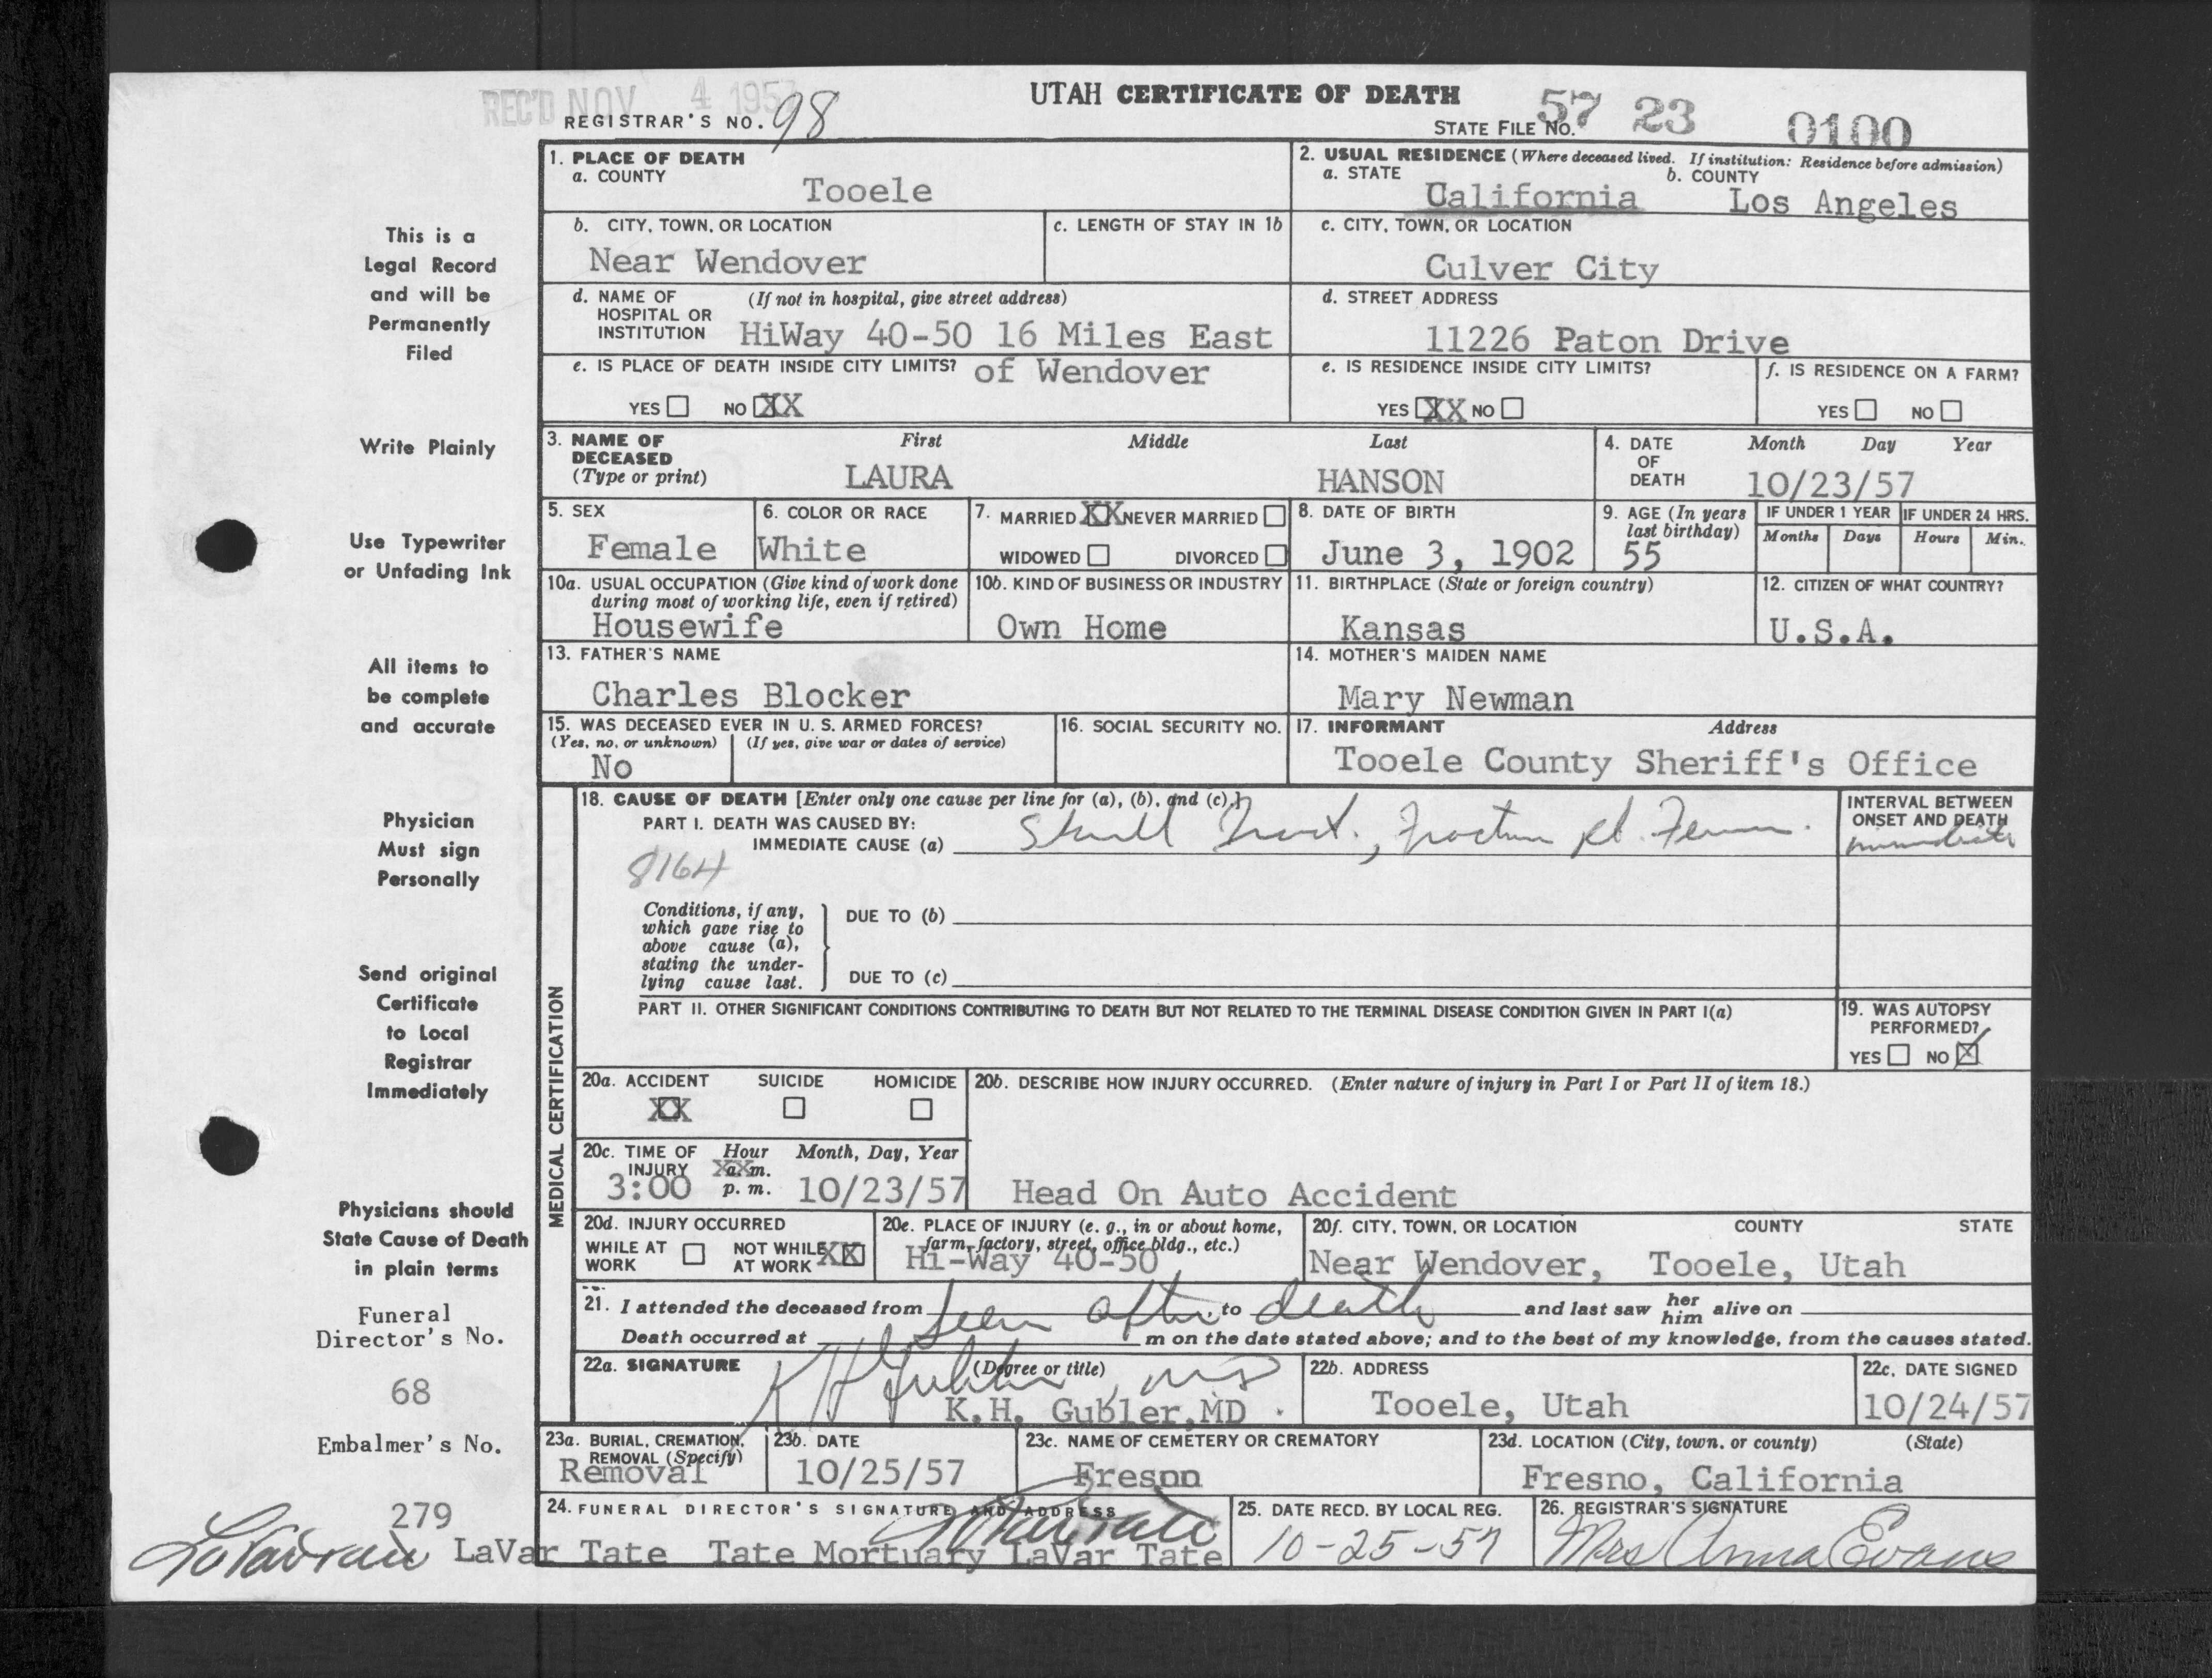 REC'D NOV 4 195
UTAH CERTIFICATE OF DEATH
REGISTRAR'S NO. 98
STATE FILE NO. 57 23 0100
1. PLACE OF DEATH
a. COUNTY
Tooele
2. USUAL RESIDENCE (Where deceased lived. If institution: Residence before admission)
a. STATE b. COUNTY
California Los Angeles
b. CITY, TOWN, OR LOCATION
Near Wendover
c. LENGTH OF STAY IN 1b
c. CITY, TOWN, OR LOCATION
Culver City
d. NAME OF HOSPITAL OR INSTITUTION (If not in hospital, give street address)
HiWay 40-50 16 Miles East
of Wendover
d. STREET ADDRESS
11226 Paton Drive
e. IS PLACE OF DEATH INSIDE CITY LIMITS?
YES NO XX
e. IS RESIDENCE INSIDE CITY LIMITS?
YES XX NO
f. IS RESIDENCE ON A FARM?
YES NO
3. NAME OF DECEASED (Type or print)
First Middle Last
LAURA HANSON
4. DATE OF DEATH Month Day Year
10/23/57
5. SEX
Female
6. COLOR OR RACE
White
7. MARRIED XX NEVER MARRIED
WIDOWED DIVORCED
8. DATE OF BIRTH
June 3, 1902
9. AGE (In years last birthday)
55
IF UNDER 1 YEAR IF UNDER 24 HRS.
Months Days Hours Min.
10a. USUAL OCCUPATION (Give kind of work done during most of working life, even if retired)
Housewife
10b. KIND OF BUSINESS OR INDUSTRY
Own Home
11. BIRTHPLACE (State or foreign country)
Kansas
12. CITIZEN OF WHAT COUNTRY?
U.S.A.
13. FATHER'S NAME
Charles Blocker
14. MOTHER'S MAIDEN NAME
Mary Newman
15. WAS DECEASED EVER IN U. S. ARMED FORCES?
(Yes, no, or unknown) (If yes, give war or dates of service)
No
16. SOCIAL SECURITY NO.
17. INFORMANT Address
Tooele County Sheriff's Office
MEDICAL CERTIFICATION
18. CAUSE OF DEATH [Enter only one cause per line for (a), (b), and (c).]
PART I. DEATH WAS CAUSED BY:
IMMEDIATE CAUSE (a) Skull Fract., Fracture Rt. Femur.
INTERVAL BETWEEN ONSET AND DEATH
immediate
8164
Conditions, if any, which gave rise to above cause (a), stating the underlying cause last.
DUE TO (b)
DUE TO (c)
PART II. OTHER SIGNIFICANT CONDITIONS CONTRIBUTING TO DEATH BUT NOT RELATED TO THE TERMINAL DISEASE CONDITION GIVEN IN PART I(a)
19. WAS AUTOPSY PERFORMED?
YES NO X
20a. ACCIDENT SUICIDE HOMICIDE
XX
20b. DESCRIBE HOW INJURY OCCURRED. (Enter nature of injury in Part I or Part II of item 18.)
Head On Auto Accident
20c. TIME OF INJURY Hour Month, Day, Year
a. m.
3:00 p. m. 10/23/57
20d. INJURY OCCURRED
WHILE AT WORK NOT WHILE AT WORK XX
20e. PLACE OF INJURY (e. g., in or about home, farm, factory, street, office bldg., etc.)
Hi-Way 40-50
20f. CITY, TOWN, OR LOCATION COUNTY STATE
Near Wendover, Tooele, Utah
21. I attended the deceased from seen after, to death and last saw her him alive on
Death occurred at m on the date stated above; and to the best of my knowledge, from the causes stated.
22a. SIGNATURE (Degree or title)
K H Gubler, MD
K.H. Gubler,MD.
22b. ADDRESS
Tooele, Utah
22c. DATE SIGNED
10/24/57
23a. BURIAL, CREMATION, REMOVAL (Specify)
Removal
23b. DATE
10/25/57
23c. NAME OF CEMETERY OR CREMATORY
Fresno
23d. LOCATION (City, town, or county) (State)
Fresno, California
24. FUNERAL DIRECTOR'S SIGNATURE AND ADDRESS
LaVar Tate
LaVar Tate Tate Mortuary LaVar Tate
25. DATE RECD. BY LOCAL REG.
10-25-57
26. REGISTRAR'S SIGNATURE
Mrs Anna Evans
This is a
Legal Record
and will be
Permanently
Filed
Write Plainly
Use Typewriter
or Unfading Ink
All items to
be complete
and accurate
Physician
Must sign
Personally
Send original
Certificate
to Local
Registrar
Immediately
Physicians should
State Cause of Death
in plain terms
Funeral
Director's No.
68
Embalmer's No.
279
LaVar Tate